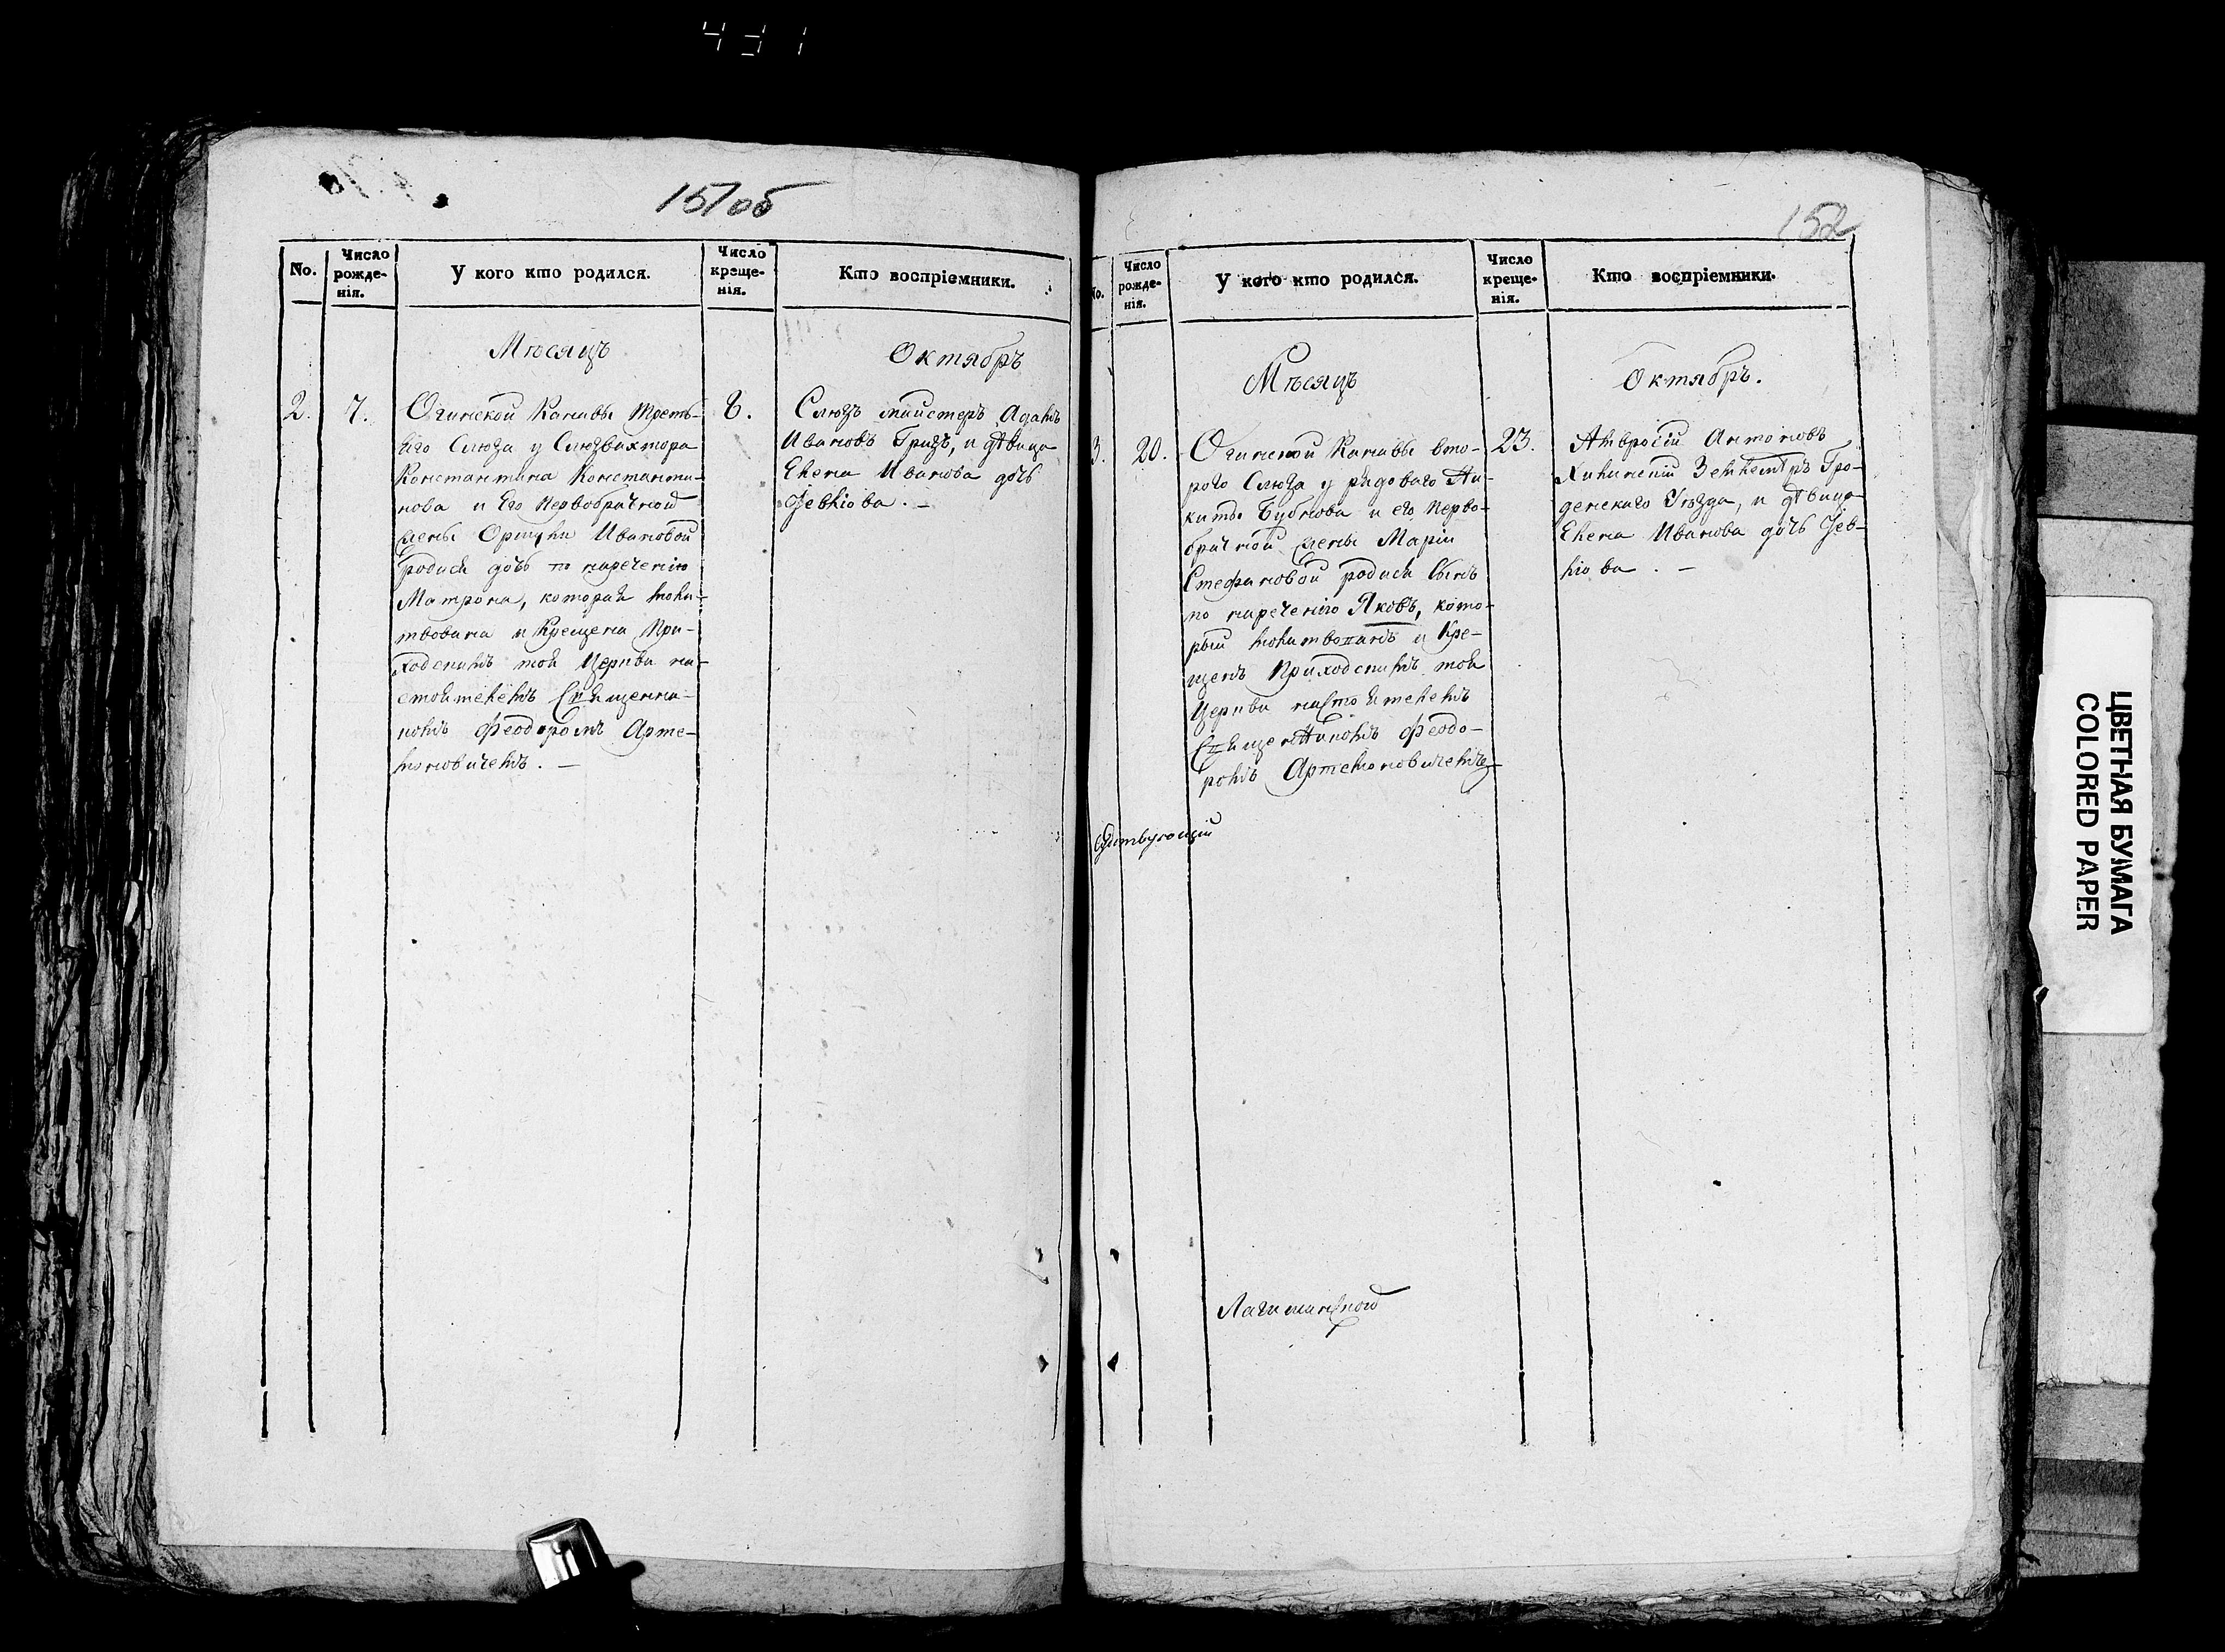 431
151об
No.
Число рожде-нія.
У кого кто родился.
Число креще-нія.
Кто воспріемники.
Мѣсяцъ
Октябръ
2.
7.
Огинской Канавы треть-
яго Слюза у Слюзвахтора
Константина Константи-
нова и Его первобрачной
жены Орины Ивановой
родися дочь по нареченію
Матрона, которая моли-
твована и крещена При-
ходскимъ той Церкви на-
стоятелемъ Священни-
комъ Феодоромъ Арте-
моновичемъ. —
8.
Слюзъ майстеръ Адамъ
Ивановъ Гризъ, и дѣвица
Елена Иванова дочь
152
No.
Число рожде-нія.
У кого кто родился.
Число креще-нія.
Кто воспріемники.
Мѣсяцъ
Октябръ.
3.
20.
Огинской Канавы вто-
рого Слюза у рядоваго Ни-
киты Бубнова и его перво-
брачной жены Маріи
Стефановой родися сынъ
по нареченію Яковъ, кото-
рый молитвованъ и кре-
щенъ Приходскимъ той
Церкви настоятелемъ
Священникомъ Феодо-
ромъ Артемоновичемъ
23.
Амвросій Антоновъ
Гро-
денскаго Уѣзда, и дѣвица
Елена Иванова дочь
ЦВЕТНАЯ БУМАГА
COLORED PAPER